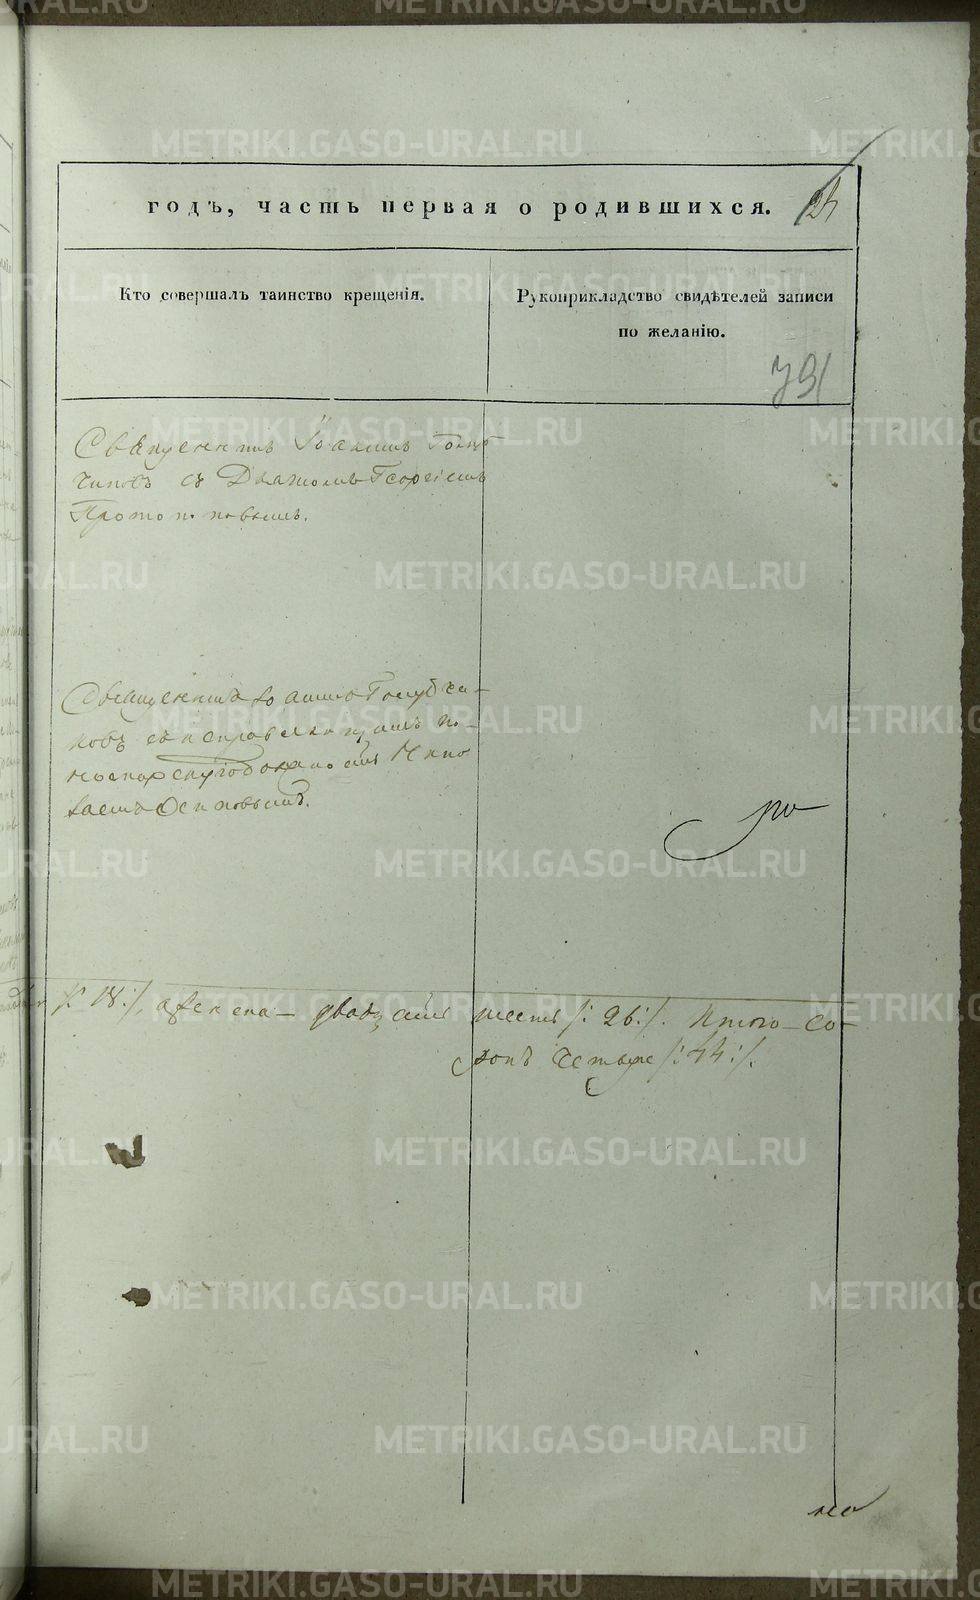 METRIKI.GASO-URAL.RU
годъ, часть первая о родившихся.
24
Кто совершалъ таинство крещенія.
Рукоприкладство свидѣтелей записи
по желанію.
791
Священникъ Іоаннъ Голуб
чиковъ съ Дьякомъ Георгіемъ
Протопоповымъ.
Священникъ Іоаннъ Голубчи-
ковъ съ исправляющимъ по-
номарскую должность
Осиповымъ.
/: 18 :/, женска – двадцать шесть /: 26 :/. Итого – со-
рокъ четыре /: 44 :/.